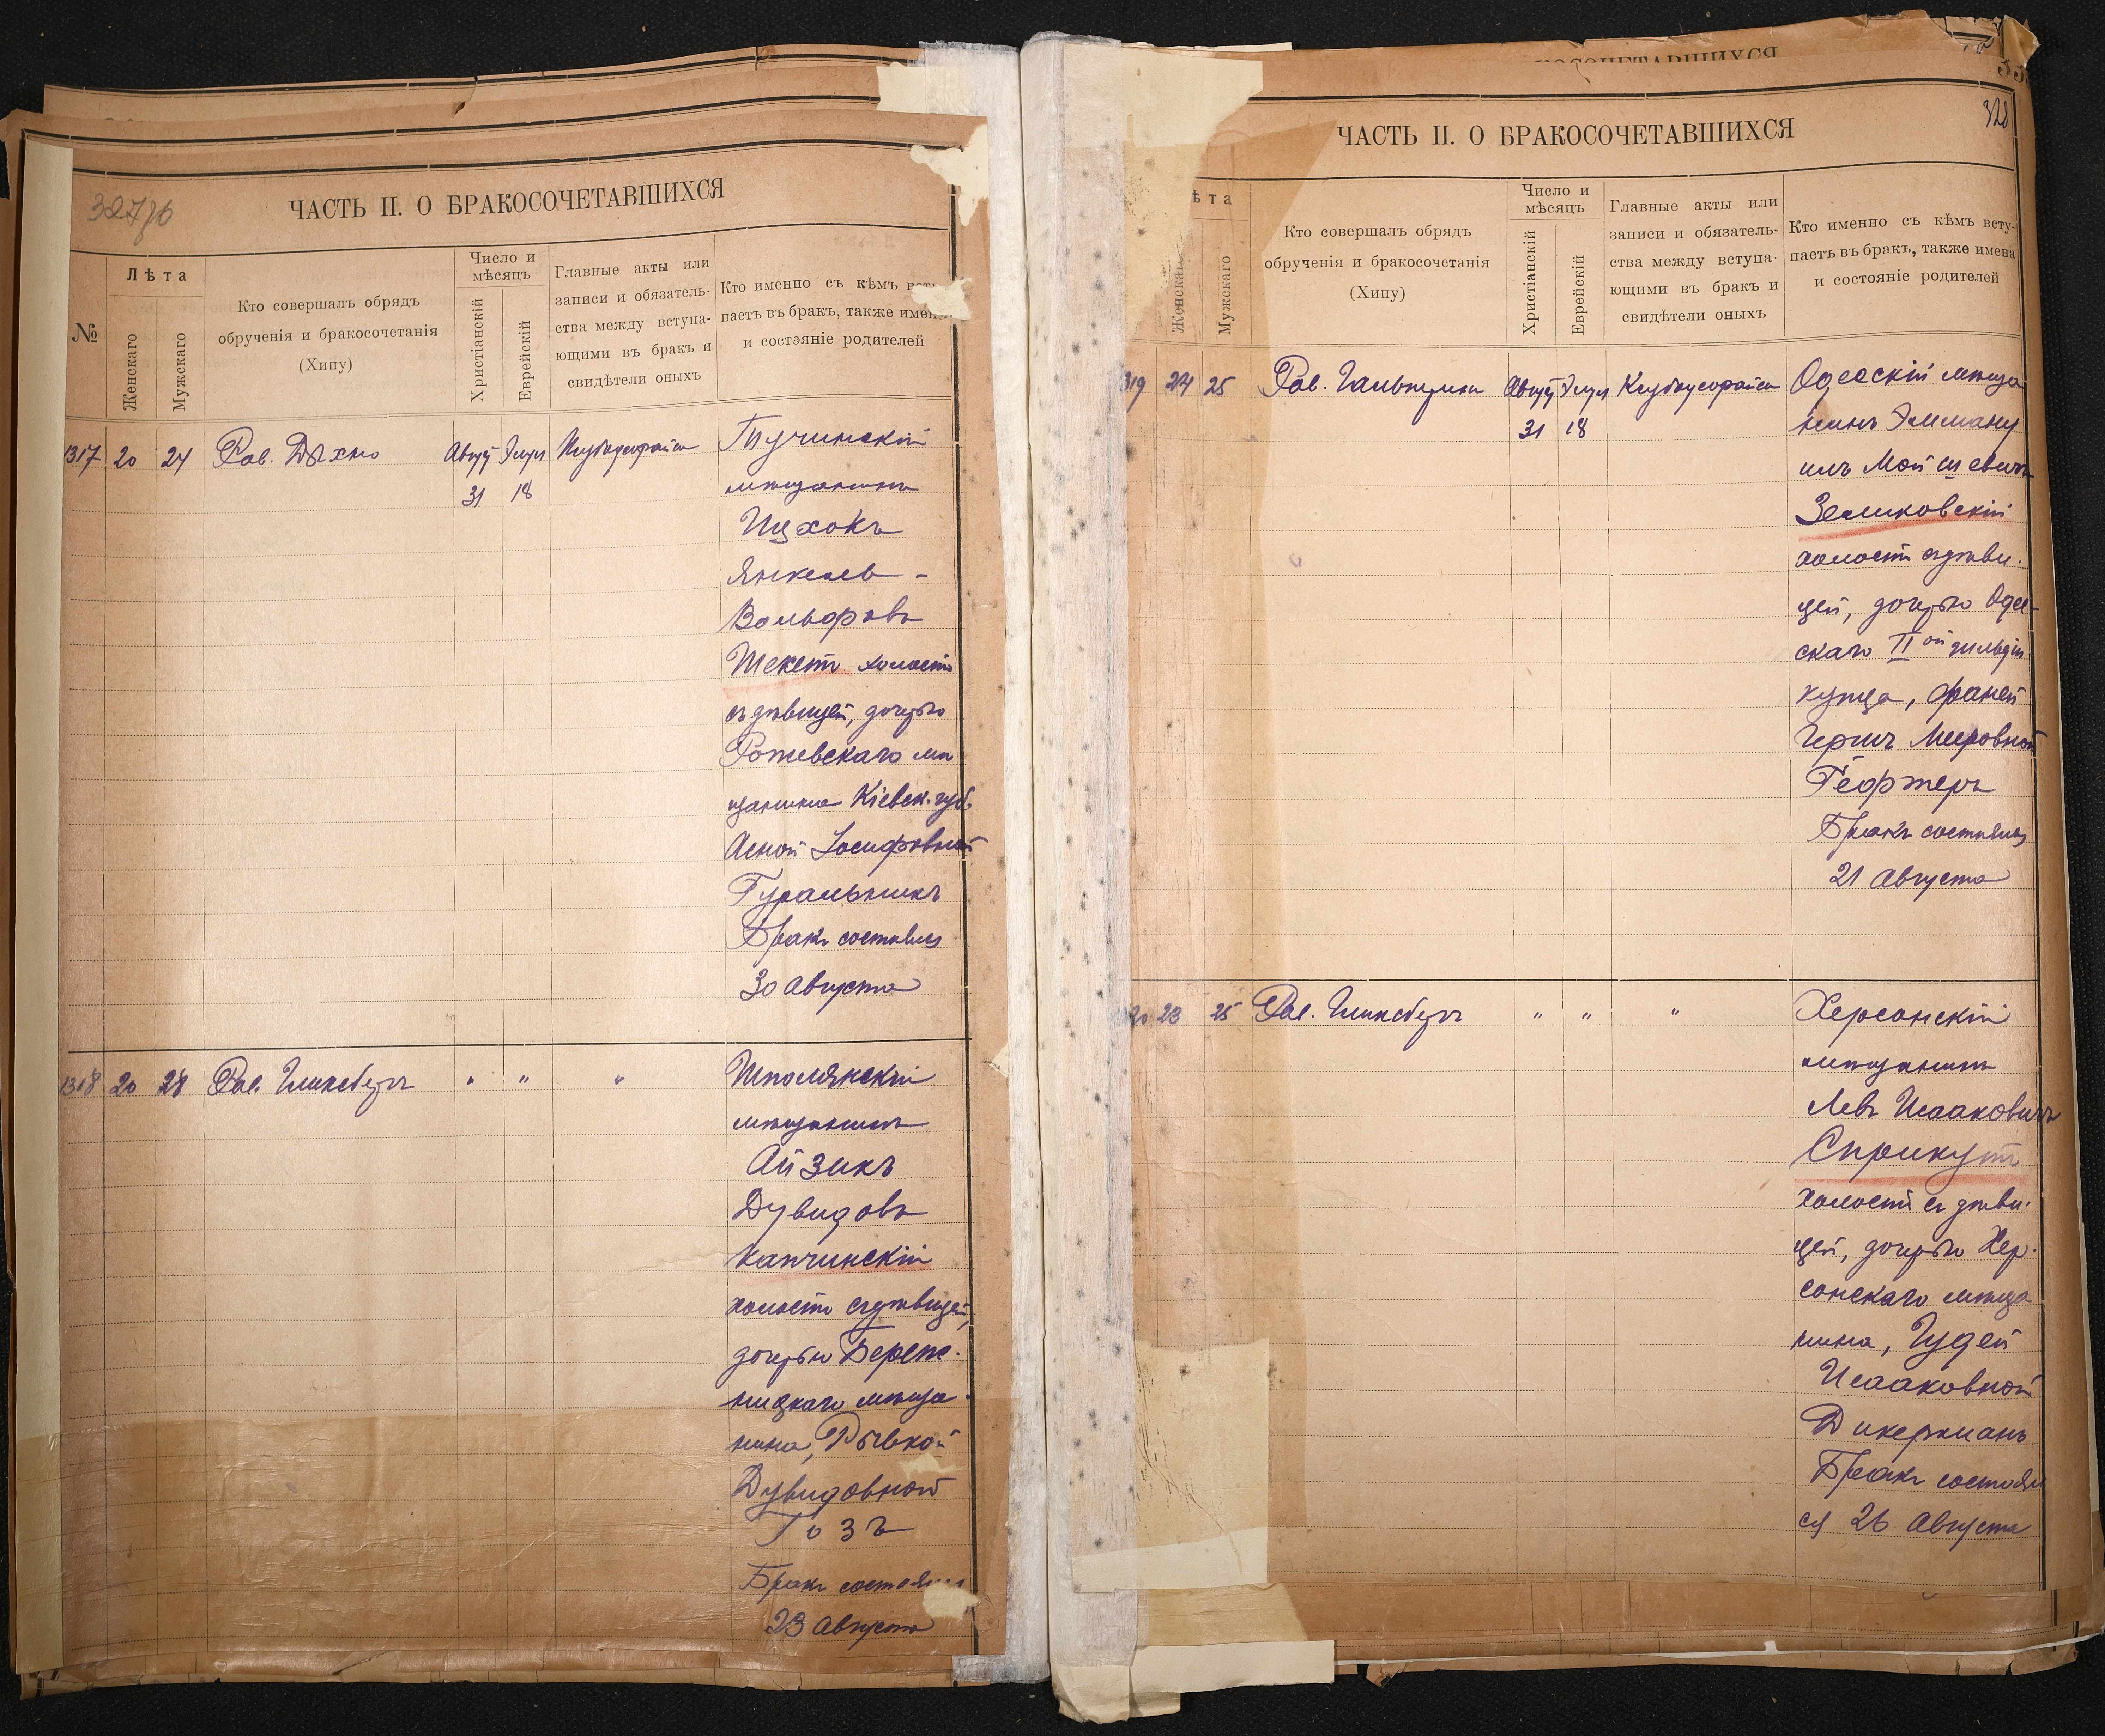 327об
ЧАСТЬ II. О БРАКОСОЧЕТАВШИХСЯ
№
Лѣта
Женскаго
Мужскаго
Кто совершалъ обрядъ
обрученія и бракосочетанія
(Хипу)
Число и
мѣсяцъ
Христіанскій
Еврейскій
Главные акты или
записи и обязатель-
ства между вступа-
ющими въ бракъ и
свидѣтели оныхъ
Кто именно съ кѣмъ всту
паетъ въ бракъ, также имена
и состояніе родителей
1317 20 24 Рав. Дыхно Август Элул
31 18
Тучинскій
мѣщанинъ
Ицхокъ
Янкель-
Вольфовъ
Шекет холостъ
съ дѣвицей, дочерью
Ротевскаго мѣ
щанина Кіевск. губ.
Асной Іосифовной
Гуральникъ
Бракъ состоялся
30 Августа
1318 20 28 Рав. Гликсбергъ " " "
Шполянскій
мѣщанинъ
Айзикъ
Дувидовъ
Капчинскій
холостъ съ дѣвицей,
дочерью Береж-
ницкаго мѣща-
нина, Рывкой
Дувидовной
Гозъ
Бракъ состоялся
23 Августа
КОСОЧЕТАВШИХСЯ
328
ЧАСТЬ II. О БРАКОСОЧЕТАВШИХСЯ
ѣта
Женскаго
Мужскаго
Кто совершалъ обрядъ
обрученія и бракосочетанія
(Хипу)
Число и
мѣсяцъ
Христіанскій
Еврейскій
Главные акты или
записи и обязатель-
ства между вступа-
ющими въ бракъ и
свидѣтели оныхъ
Кто именно съ кѣмъ всту-
паетъ въ бракъ, также имена
и состояніе родителей
319 24 25 Рав. Гальперин Август Элул
31 18
Одесскій мѣща
нинъ Эмману
илъ Мойшевичъ
Зеликовскій
холостъ съ дѣви-
цей, дочерью Одес-
скаго II ой гильдіи
купца, Фаней
Герш Мееровной
Гефтеръ
Бракъ состоялся
21 Августа
20 23 25 Рав. Гликсбергъ " " "
Херсонскій
мѣщанинъ
Левъ Исааковичъ
Сприкут
холостъ съ дѣви-
цей, дочерью Хер-
сонскаго мѣща
нина, Гудей
Исааковной
Дикерманъ
Бракъ состоял
ся 26 Августа